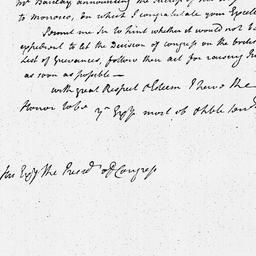 Mr Barclay announcing the
to morocco, on which I congratulate your Excell
Permit me Sir to hint whether it would not be
expedient to let the Decision of congress on the
List of Grievances, follow their act for raising
as soon as possible—
with great Respect & Esteem I have the
Honor to be yr Exys most ob & hble
the Presdt of Congress